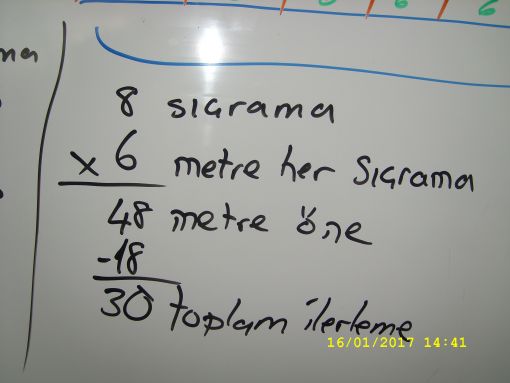 ma
8 sıcrama
x 6 metre her Sıcrama
48 metre öne
-18
30 toplam ilerleme
16/01/2017 14:41